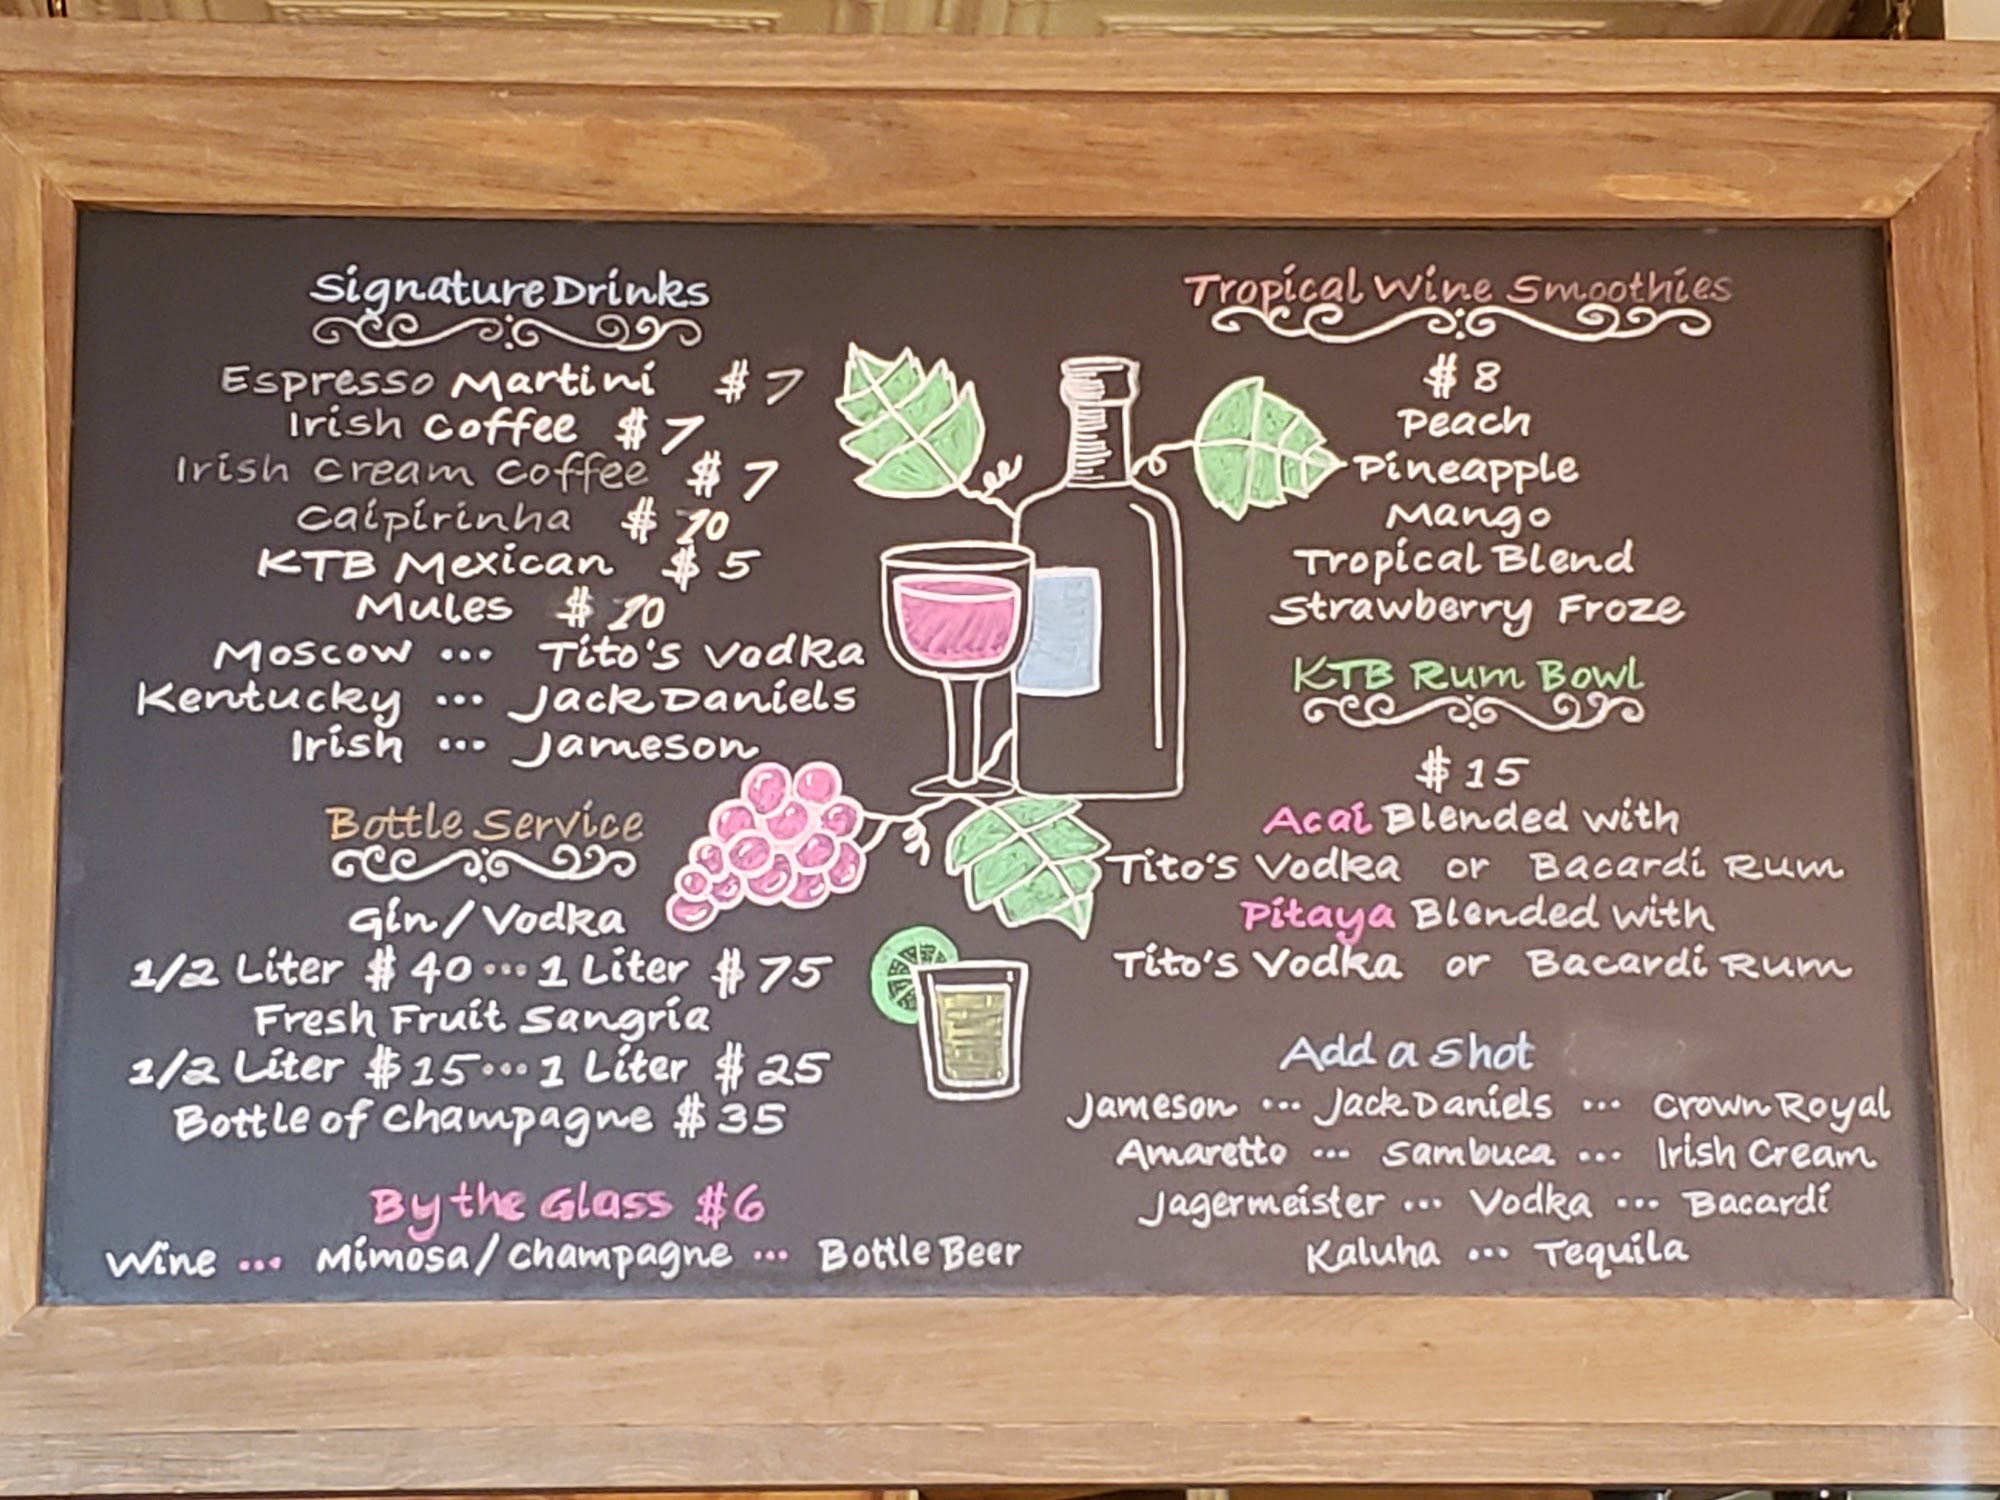 Signature Drinks
Espresso Martini $7
Irish Coffee $7
Irish Cream Coffee $7
Caipirinha $10
KTB Mexican $5
Mules $10
Moscow ... Tito's Vodka
Kentucky ... Jack Daniels
Irish ... Jameson
Bottle Service
Gin/Vodka
1/2 Liter $40...1 Liter $75
Fresh Fruit Sangria
1/2 Liter $15...1 Liter $25
Bottle of Champagne $35
By the Glass $6
Wine ... Mimosa/Champagne ... Bottle Beer
Tropical Wine Smoothies
$8
Peach
Pineapple
Mango
Tropical Blend
Strawberry Froze
KTB Rum Bowl
$15
Acai Blended with
Tito's Vodka or Bacardi Rum
Pitaya Blended with
Tito's Vodka or Bacardi Rum
Add a Shot
Jameson ... Jack Daniels ... Crown Royal
Amaretto ... Sambuca ... Irish Cream
Jagermeister ... Vodka ... Bacardi
Kaluha ... Tequila